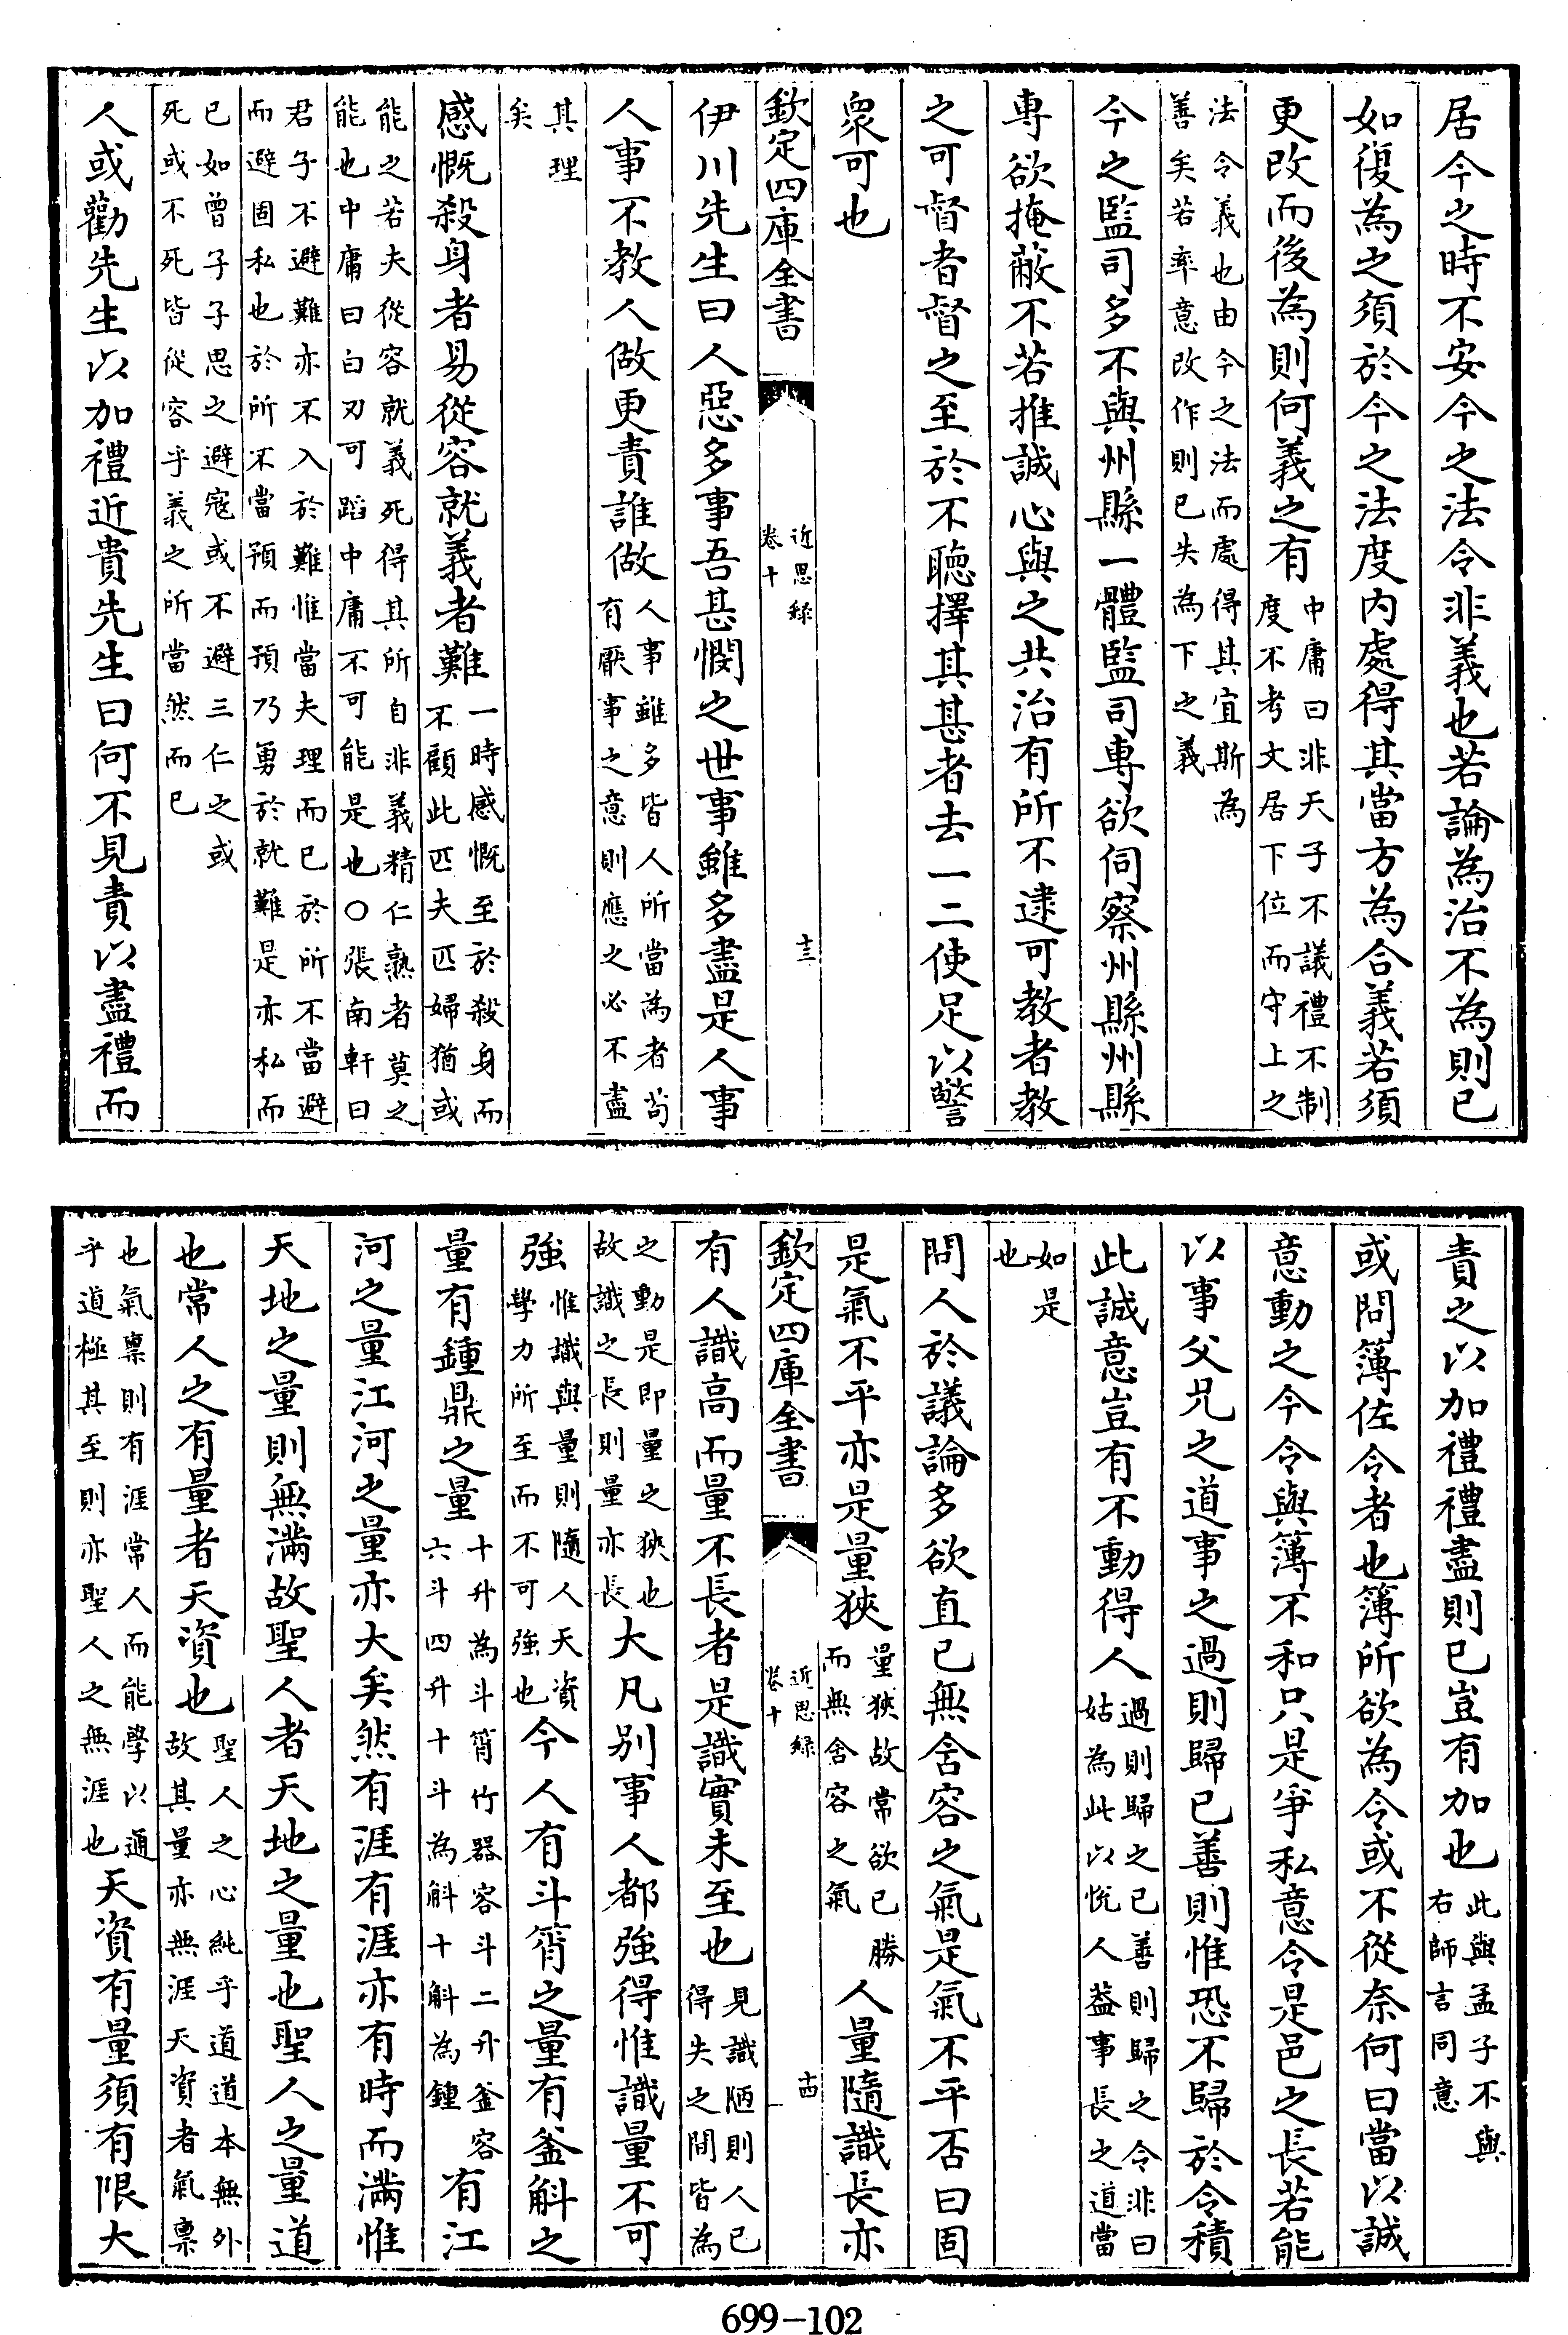 居今之時不安今之法令非義也若論為治不為則已
如復為之須於今之法度内處得其當方為合義若須
更改而後為則何義之有中庸曰非天子不議禮不制度不考文居下位而守上之
法令義也由今之法而處得其宜斯為善矣若率意改作則已失為下之義
今之監司多不與州縣一體監司専欲伺察州縣州縣
専欲掩蔽不若推誠心與之共治有所不逮可教者教
之可督者督之至於不聴擇其甚者去一二使足以警
衆可也
欽定四庫全書 近思録 卷十 十三
伊川先生曰人惡多事吾甚憫之世事雖多盡是人事
人事不教人做更責誰做人事雖多皆人所當為者茍有厭事之意則應之必不盡
其理矣
感慨殺身者易從容就義者難一時感慨至於殺身而不顧此匹夫匹婦猶或
能之若夫從容就義死得其所自非義精仁熟者莫之能也中庸曰白刃可蹈中庸不可能是也○張南軒曰
君子不避難亦不入於難惟當夫理而已於所不當避而避固私也於所不當預而預乃勇於就難是亦私而
已如曾子子思之避寇或不避三仁之或死或不死皆從容乎義之所當然而已
人或勸先生以加禮近貴先生曰何不見責以盡禮而
責之以加禮禮盡則已豈有加也此與孟子不與右師言同意
或問簿佐令者也簿所欲為令或不從奈何曰當以誠
意動之今令與簿不和只是爭私意令是邑之長若能
以事父兄之道事之過則歸已善則惟恐不歸於令積
此誠意豈有不動得人過則歸之已善則歸之令非曰姑為此以悅人葢事長之道當
如是也
問人於議論多欲直已無含容之氣是氣不平否曰固
是氣不平亦是量狹量狹故常欲已勝而無含容之氣人量隨識長亦
欽定四庫全書 近思録 卷十 十四
有人識高而量不長者是識實未至也見識陋則人已得失之間皆為
之動是即量之狹也故識之長則量亦長大凡别事人都強得惟識量不可
強惟識與量則隨人天資學力所至而不可強也今人有斗筲之量有釜斛之
量有鍾鼎之量十升為斗筲竹器容斗二升釜容六斗四升十斗為斛十斛為鍾有江
河之量江河之量亦大矣然有涯有涯亦有時而滿惟
天地之量則無滿故聖人者天地之量也聖人之量道
也常人之有量者天資也聖人之心純乎道道本無外故其量亦無涯天資者氣禀
也氣禀則有涯常人而能學以通乎道極其至則亦聖人之無涯也天資有量須有限大
699-102